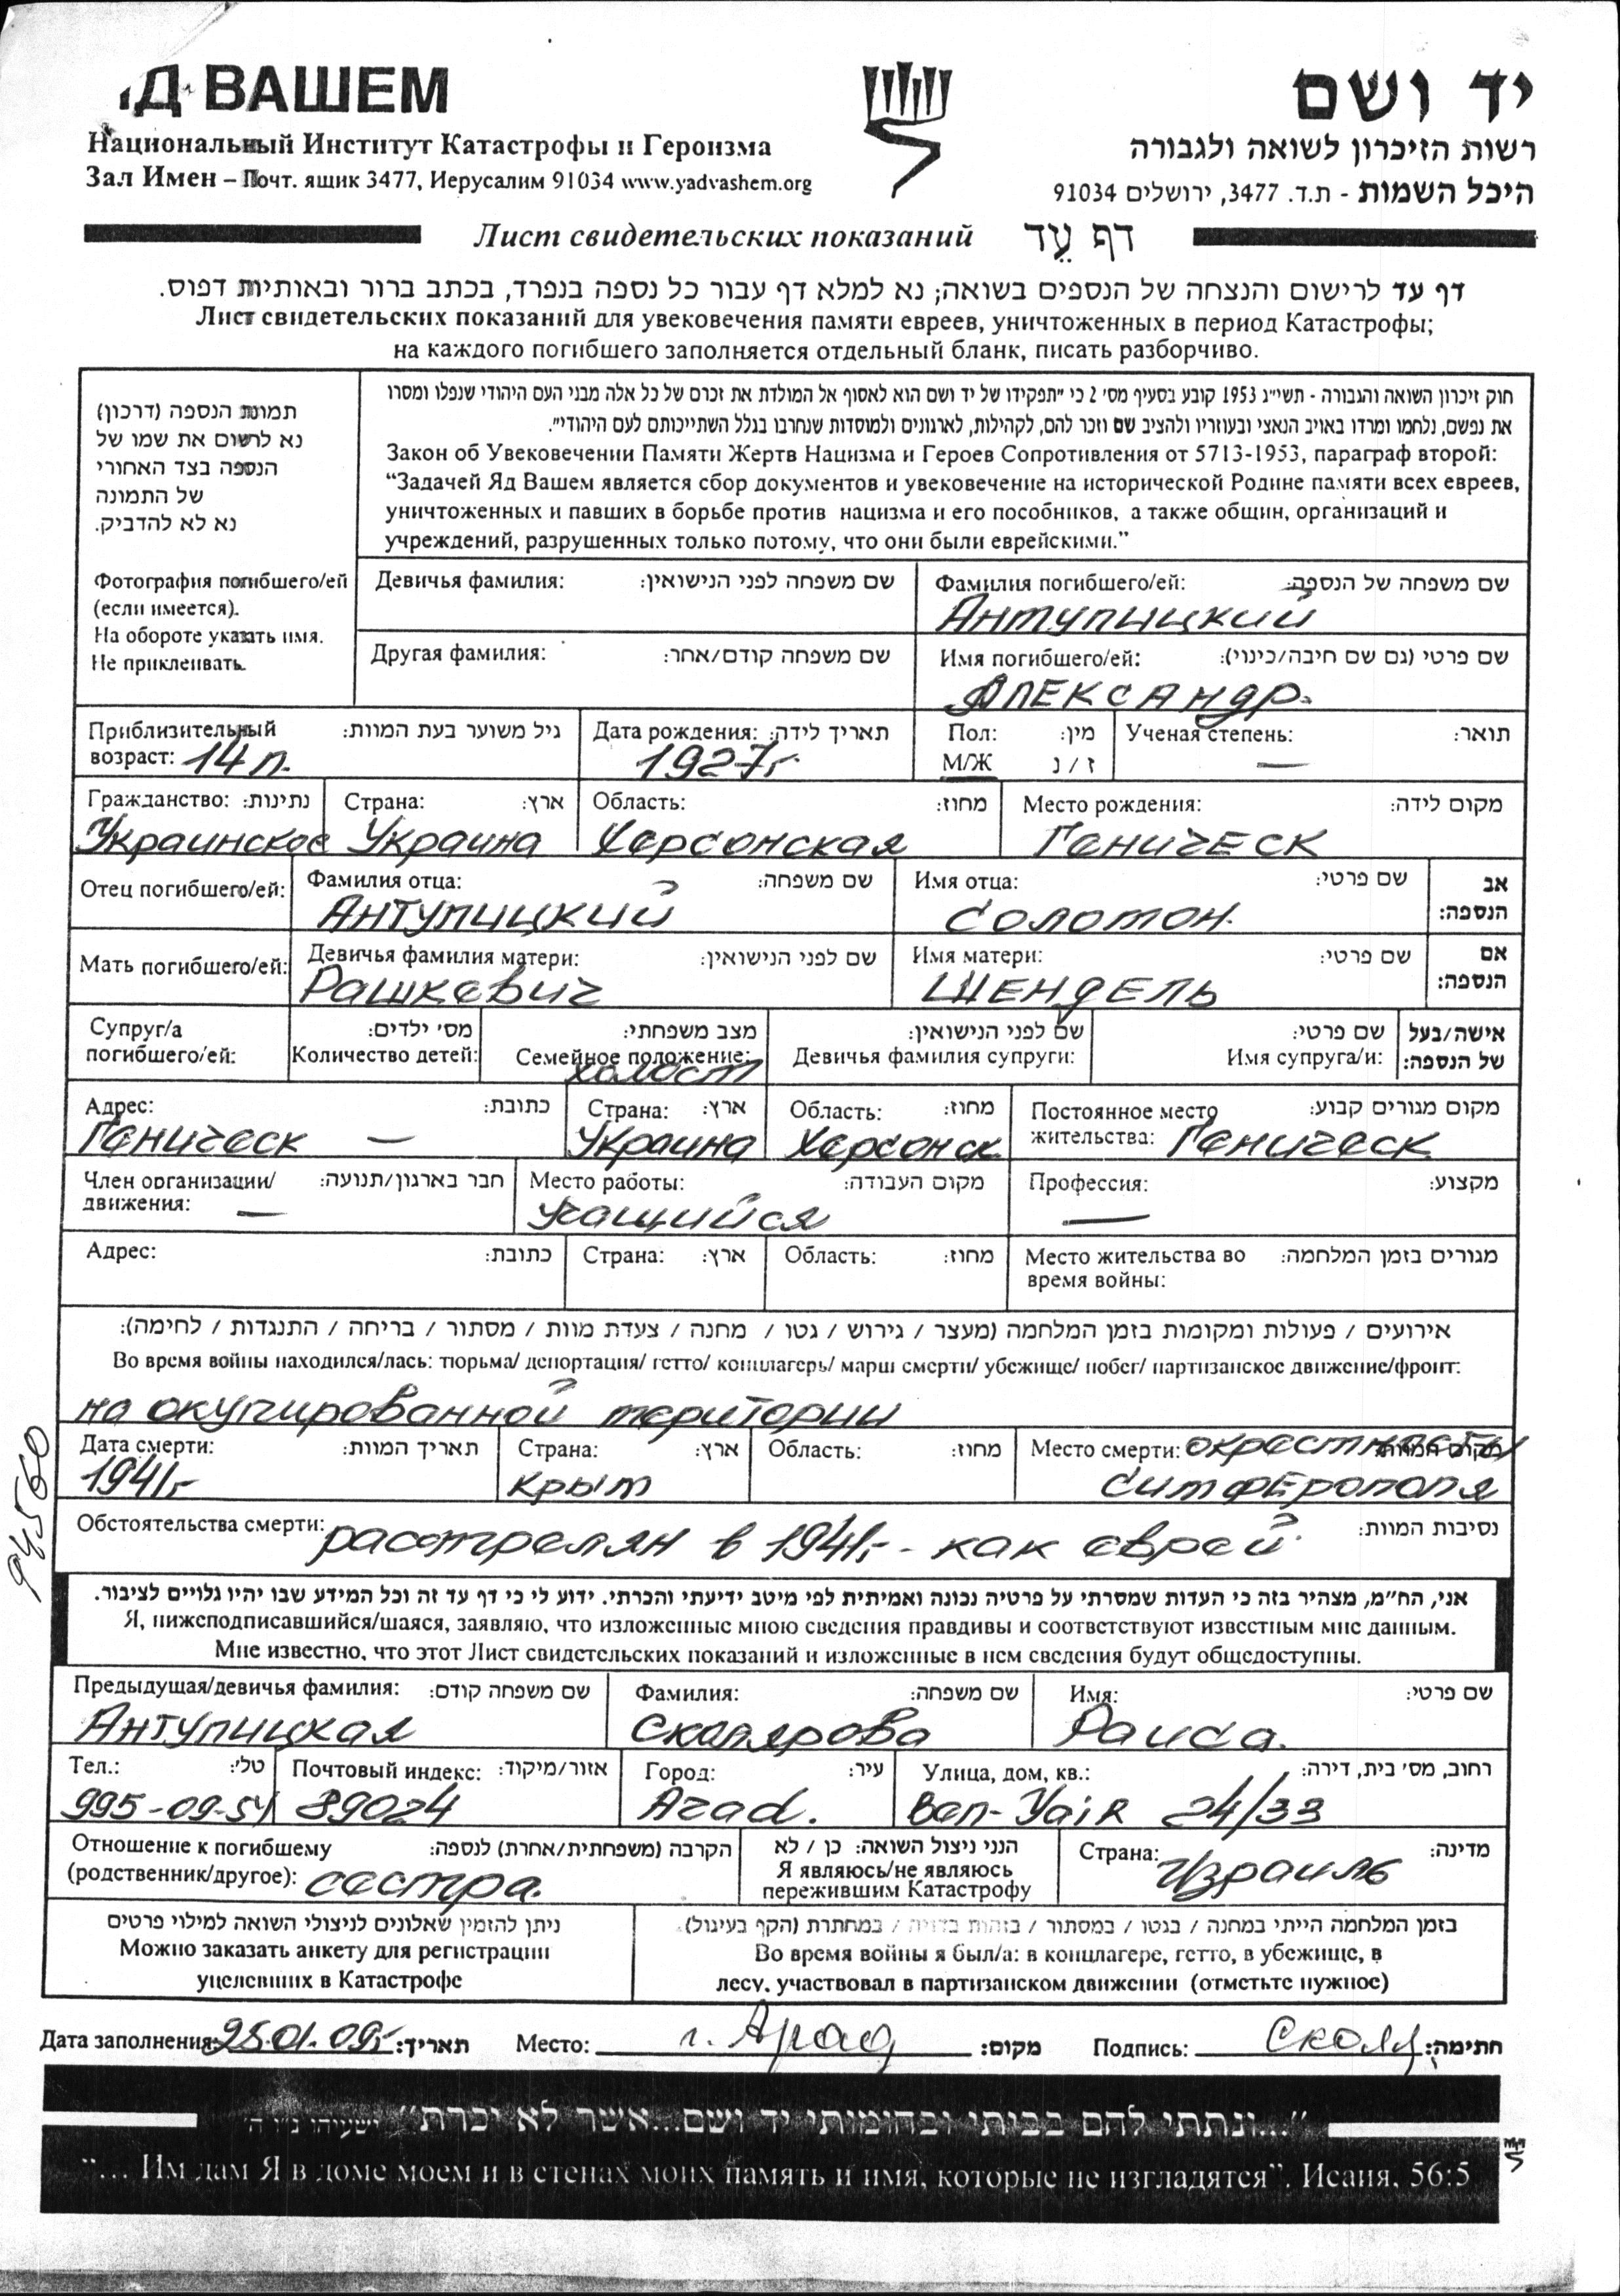 ЯД ВАШЕМ
יד ושם
Национальный Институт Катастрофы и Героизма
רשות הזיכרון לשואה ולגבורה
Зал Имен – Почт. ящик 3477, Иерусалим 91034 www.yadvashem.org
היכל השמות - ת.ד. 3477, ירושלים 91034
Лист свидетельских показаний דף עֵד
דף עד לרישום והנצחה של הנספים בשואה; נא למלא דף עבור כל נספה בנפרד, בכתב ברור ובאותיות דפוס.
Лист свидетельских показаний для увековечения памяти евреев, уничтоженных в период Катастрофы;
на каждого погибшего заполняется отдельный бланк, писать разборчиво.
תמונת הנספה (דרכון)
נא לרשום את שמו של
הנספה בצד האחורי
של התמונה
נא לא להדביק.
Фотография погибшего/ей
(если имеется).
На обороте указать имя.
Не приклеивать.
חוק זיכרון השואה והגבורה - תשי״ג 1953 קובע בסעיף מס׳ 2 כי ״תפקידו של יד ושם הוא לאסוף אל המולדת את זכרם של כל אלה מבני העם היהודי שנפלו ומסרו
את נפשם, נלחמו ומרדו באויב הנאצי ובעוזריו ולהציב שם וזכר להם, לקהילות, לארגונים ולמוסדות שנחרבו בגלל השתייכותם לעם היהודי״.
Закон об Увековечении Памяти Жертв Нацизма и Героев Сопротивления от 5713-1953, параграф второй:
“Задачей Яд Вашем является сбор документов и увековечение на исторической Родине памяти всех евреев,
уничтоженных и павших в борьбе против нацизма и его пособников, а также общин, организаций и
учреждений, разрушенных только потому, что они были еврейскими.”
Девичья фамилия: שם משפחה לפני הנישואין:
Фамилия погибшего/ей: שם משפחה של הנספה:
Антупицкий
Другая фамилия: שם משפחה קודם/אחר:
Имя погибшего/ей: שם פרטי (גם שם חיבה/כינוי):
Александр.
Приблизительный возраст: 14 л. גיל משוער בעת המוות:
Дата рождения: תאריך לידה:
1927г.
Пол: מין:
М/Ж ז / נ
Ученая степень: תואר:
—
Гражданство: נתינות:
Украинское
Страна: ארץ:
Украина
Область: מחוז:
Херсонская
Место рождения: מקום לידה:
Геническ
Отец погибшего/ей:
Фамилия отца: שם משפחה:
Антупицкий
Имя отца: שם פרטי:
Соломон.
אב
הנספה:
Мать погибшего/ей:
Девичья фамилия матери: שם לפני הנישואין:
Рашкевич
Имя матери: שם פרטי:
Шендель
אם
הנספה:
Супруг/а
погибшего/ей:
מס׳ ילדים:
Количество детей:
מצב משפחתי:
Семейное положение:
холост
שם לפני הנישואין:
Девичья фамилия супруги:
שם פרטי:
Имя супруга/и:
אישה/בעל
של הנספה:
Адрес: כתובת:
Геническ —
Страна: ארץ:
Украина
Область: מחוז:
Херсонск.
Постоянное место מקום מגורים קבוע:
жительства: Геническ
Член организации/ חבר בארגון/תנועה:
движения: —
Место работы: מקום העבודה:
Учащийся
Профессия: מקצוע:
—
Адрес: כתובת:
Страна: ארץ:
Область: מחוז:
Место жительства во מגורים בזמן המלחמה:
время войны:
אירועים / פעולות ומקומות בזמן המלחמה (מעצר / גירוש / גטו / מחנה / צעדת מוות / מסתור / בריחה / התנגדות / לחימה):
Во время войны находился/лась: тюрьма/ депортация/ гетто/ концлагерь/ марш смерти/ убежище/ побег/ партизанское движение/фронт:
на окупированной територии
Дата смерти: תאריך המוות:
1941г.
Страна: ארץ:
Крым
Область: מחוז:
Место смерти: окрестности מקום המוות:
Симферополя
Обстоятельства смерти: расстрелян в 1941г.- как еврей. נסיבות המוות:
94560
אני, הח״מ, מצהיר בזה כי העדות שמסרתי על פרטיה נכונה ואמיתית לפי מיטב ידיעתי והכרתי. ידוע לי כי דף עד זה וכל המידע שבו יהיו גלויים לציבור.
Я, нижеподписавшийся/шаяся, заявляю, что изложенные мною сведения правдивы и соответствуют известным мне данным.
Мне известно, что этот Лист свидетельских показаний и изложенные в нем сведения будут общедоступны.
Предыдущая/девичья фамилия: שם משפחה קודם:
Антупицкая
Фамилия: שם משפחה:
Сколярова
Имя: שם פרטי:
Раиса.
Тел.: טל׳:
995-09-54
Почтовый индекс: אזור/מיקוד:
89024
Город: עיר:
Arad.
Улица, дом, кв.: רחוב, מס׳ בית, דירה:
Ben-Yair 24/33
Отношение к погибшему הקרבה (משפחתית/אחרת) לנספה:
(родственник/другое): сестра.
הנני ניצול השואה: כן / לא
Я являюсь/не являюсь
пережившим Катастрофу
Страна: מדינה:
Израиль
ניתן להזמין שאלונים לניצולי השואה למילוי פרטים
Можно заказать анкету для регистрации
уцелевших в Катастрофе
בזמן המלחמה הייתי במחנה / בגטו / במסתור / בזהות בדויה / במחתרת (הקף בעיגול).
Во время войны я был/а: в концлагере, гетто, в убежище, в
лесу, участвовал в партизанском движении (отметьте нужное)
Дата заполнения: 25.01.09г. תאריך: Место: г. Арад מקום: Подпись: Скояр חתימה:
“...ונתתי להם בביתי ובחומותי יד ושם...אשר לא יכרת” ישעיהו נ״ו ה׳
“... Им дам Я в доме моем и в стенах моих память и имя, которые не изгладятся”. Исаия, 56:5